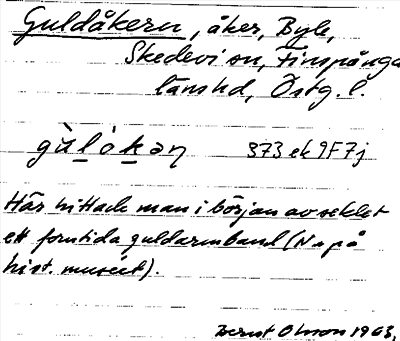 Guldåkern, åker, Byle,
Skedevi sn, Finspånga
länshd, Östg. l.
gùlókəɳ 373 ek 9F7j
Här hittade man i början av seklet
ett forntida guldarmband (Nu på
hist. muséet).
Bernt Olsson 1963,